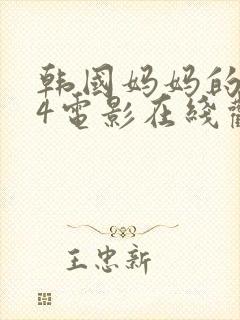 韩国妈妈的
4电影在线
王忠新